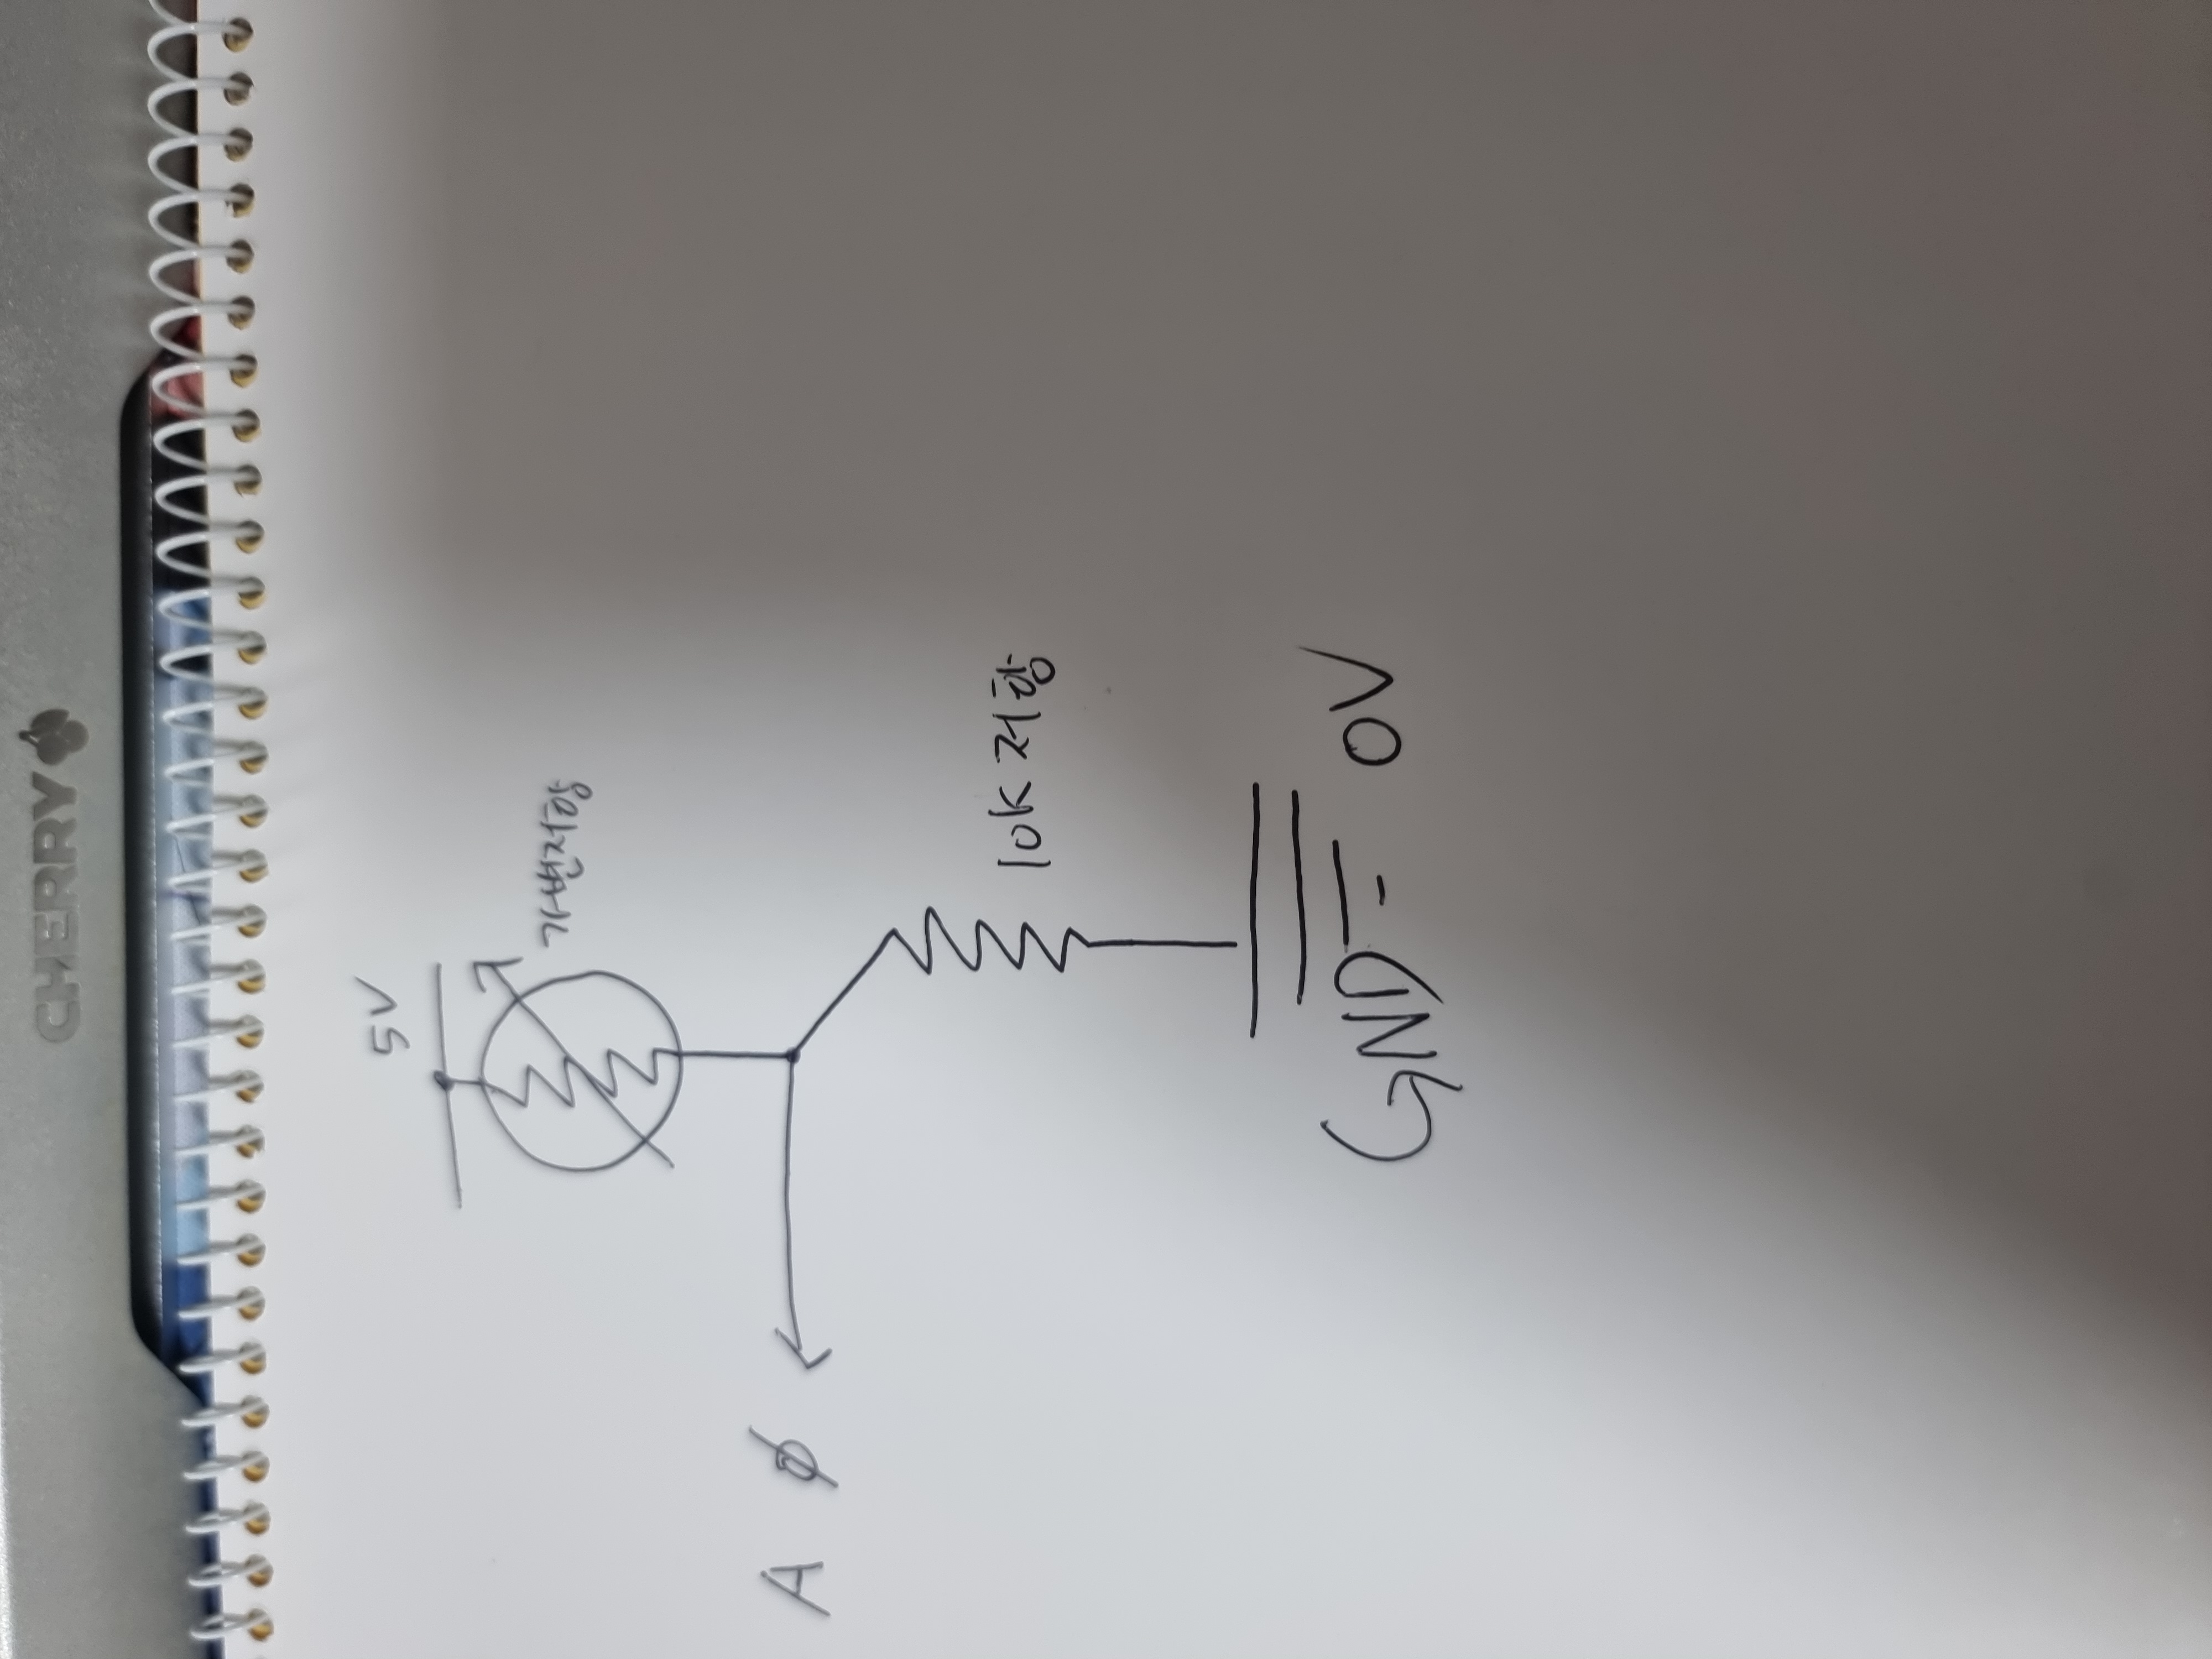 CHERRY
5V
가변저항
A Ø
10K 저항
GND 0V